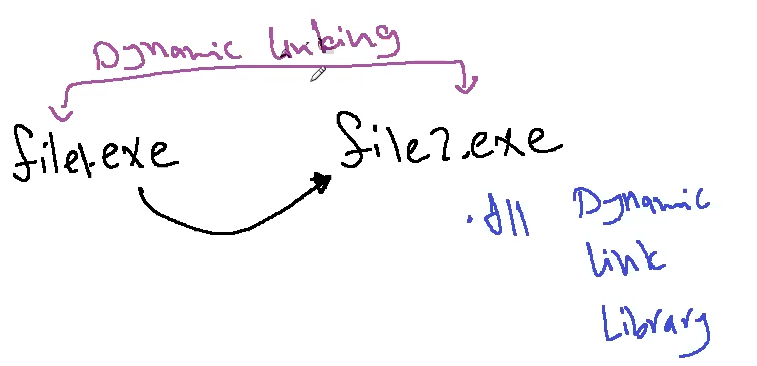 Dynamic linking
file1.exe
file2.exe
.dll
Dynamic
Link
Library